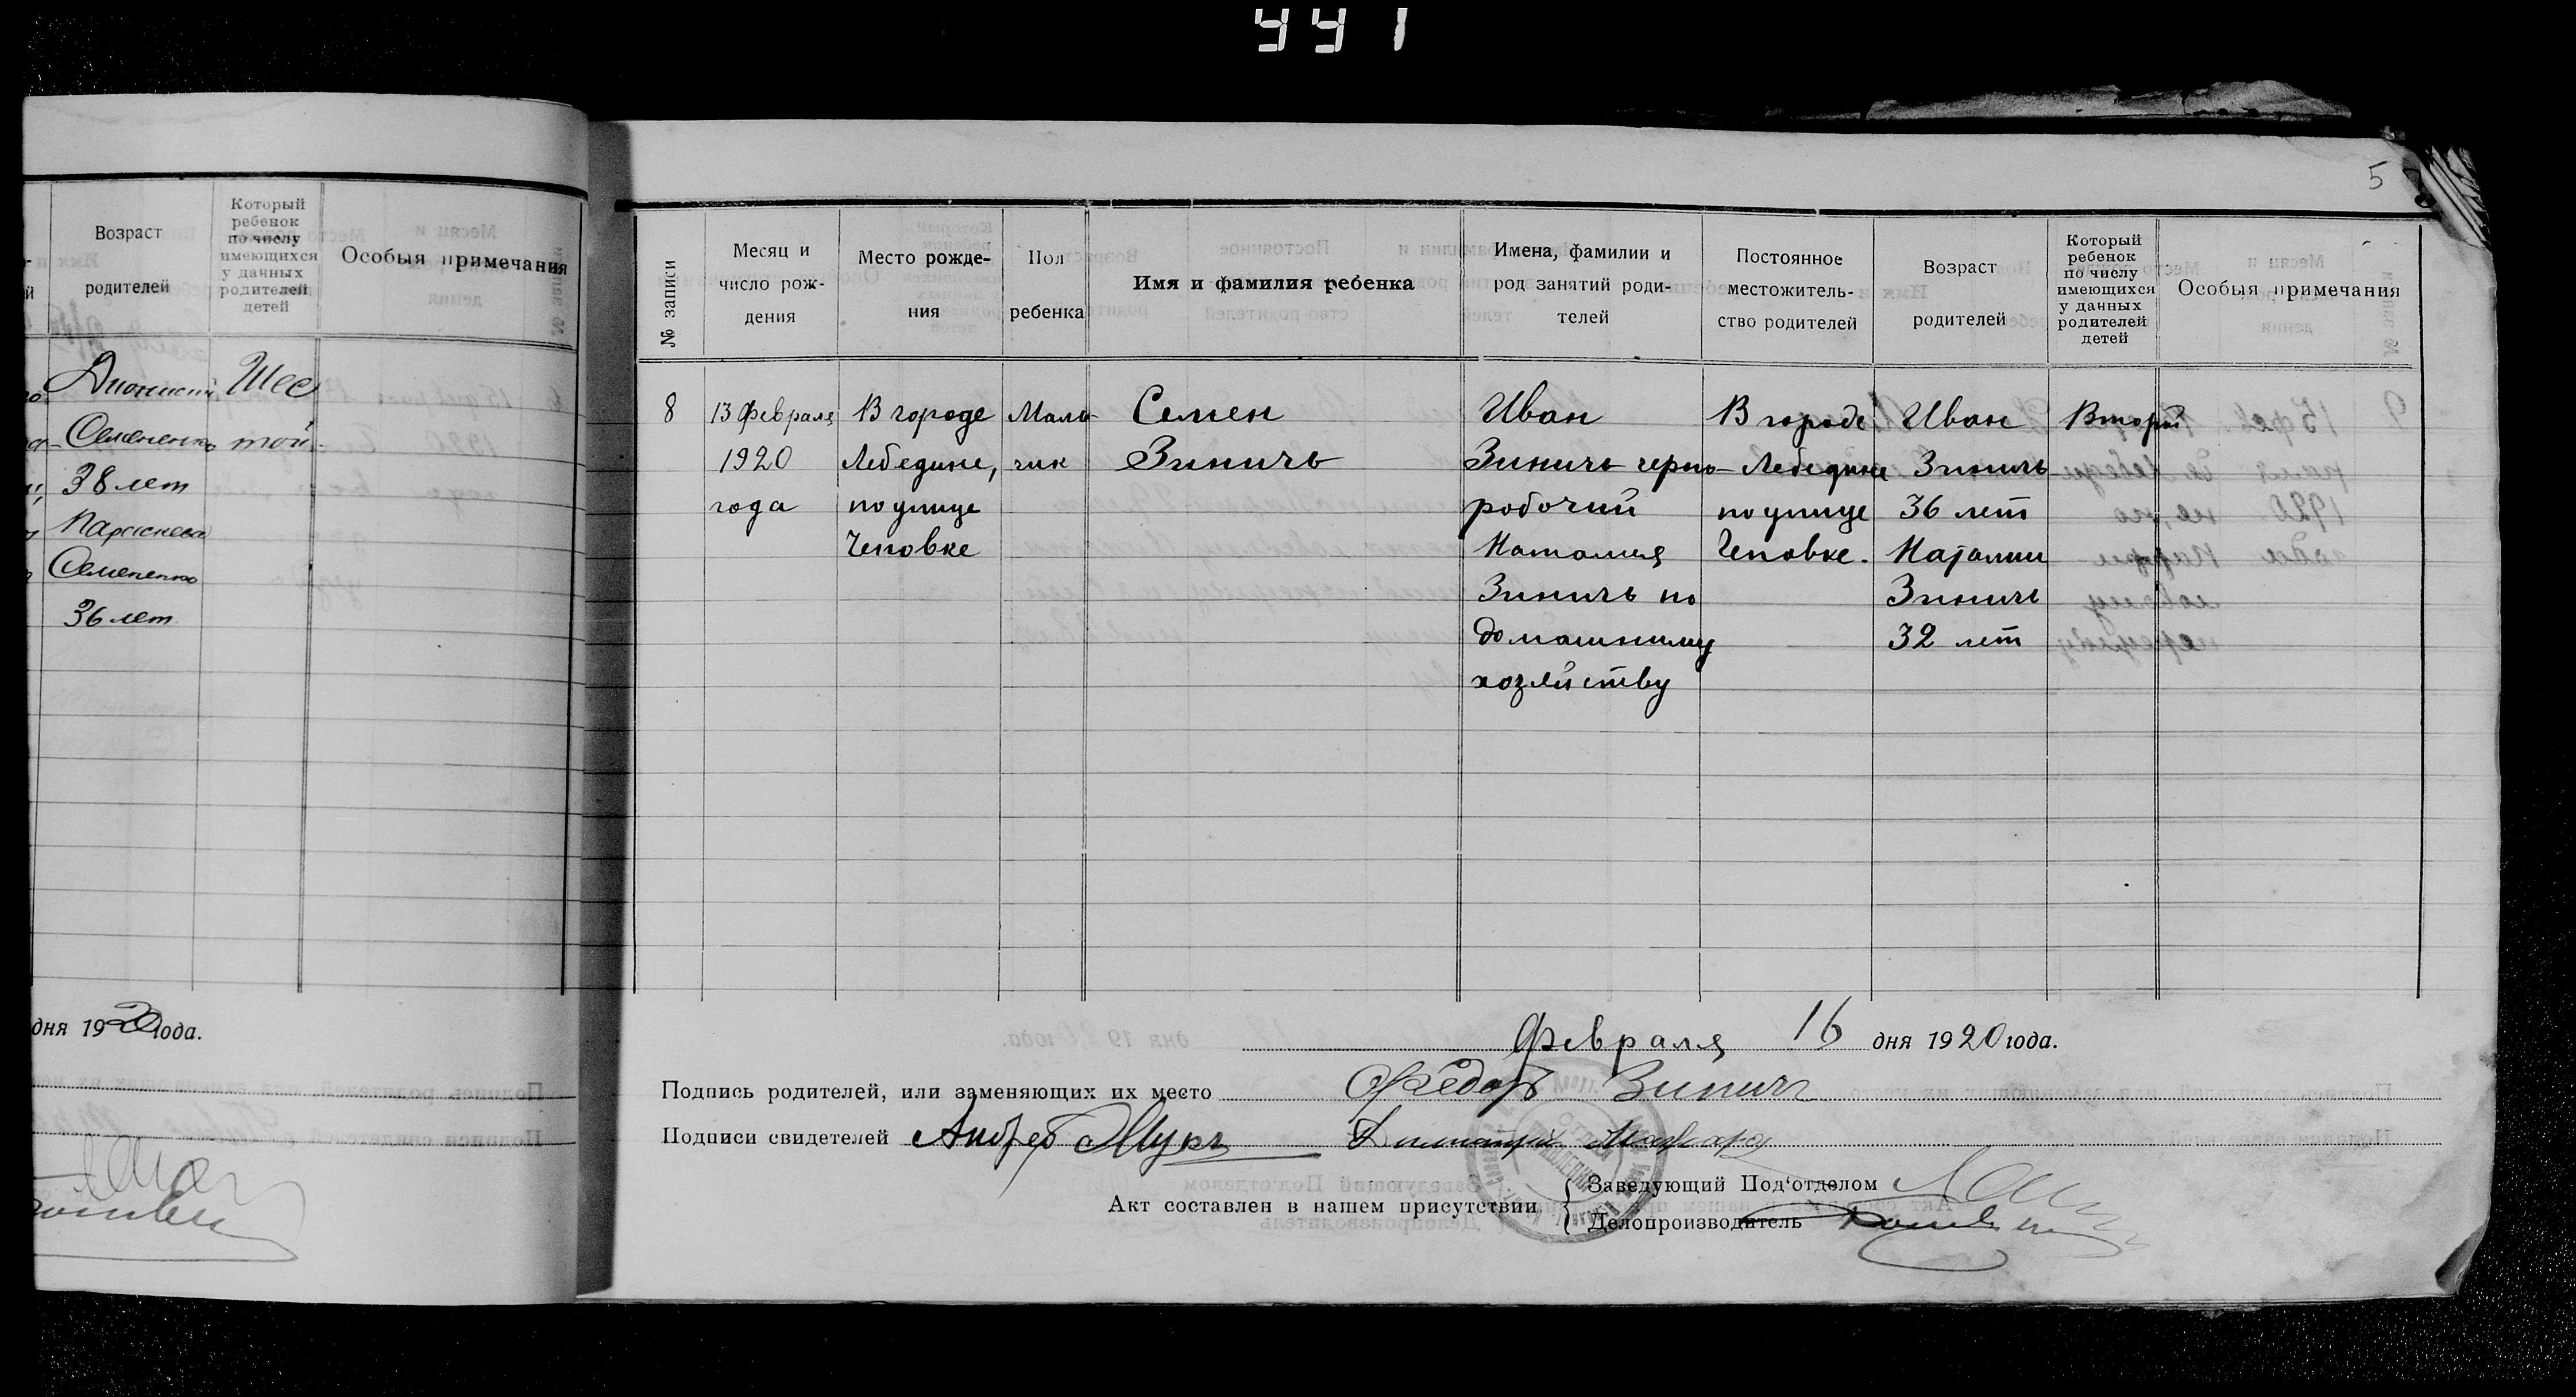 991
Возраст
родителей
Который
ребенок
по числу
имеющихся
у данных
родителей
детей
Особыя примечания
Дионисий
Семененко
38 лет
Параскева
Семененко
36 лет
Шес
той
дня 1920 года.
5
№ записи
Месяц и
число рож-
дения
Место рожде-
ния
Пол
ребенка
Имя и фамилия ребенка
Имена, фамилии и
род занятий роди-
телей
Постоянное
местожитель-
ство родителей
Возраст
родителей
Который
ребенок
по числу
имеющихся
у данных
родителей
детей
Особыя примечания
8
13 Февраля
1920
года
В городе
Лебедине,
по улице
Чеповке
Маль-
чик
Семен
Зиничь
Иван
Зиничь черно-
робочий
Наталия
Зиничь по
домашниму
хозяйству
В городе
Лебедине
по улице
Чеповке.
Иван
Зиничь
36 лет
Наталии
Зиничь
32 лет
Второй
Февраля 16 дня 1920 года.
Подпись родителей, или заменяющих их место Федоръ Зинич
Подписи свидетелей Андрей Димитрий
Акт составлен в нашем присутствии
Заведующий Под'отделом
Делопроизводитель